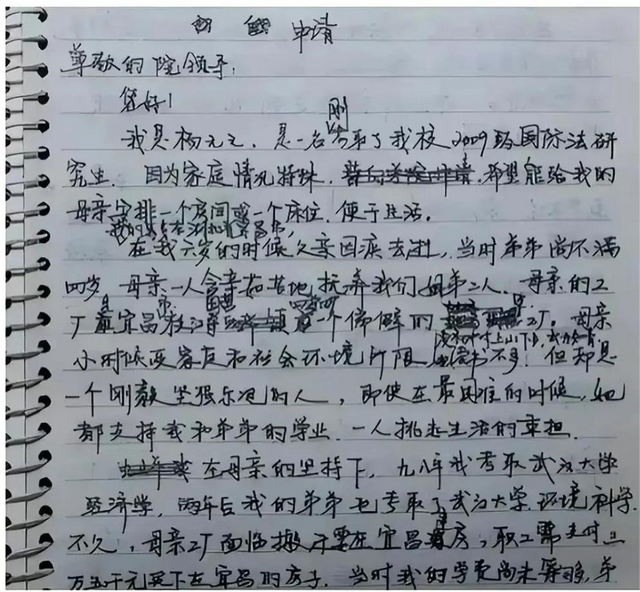 申请
尊敬的院领导：
您好！
刚
我是杨元元，是一名考取了我校2009级国际法研
究生。因为家庭情况特殊，希望能给我的
母亲安排一个房间或一个床位，便于生活。
在我六岁的时候父亲因病去世，当时弟弟尚不满
四岁，母亲一人含辛茹苦地抚养我们姐弟二人。母亲的工
厂是宜昌枝江 一个偏僻的 工厂。母亲
小时候受家庭和社会环境所限 读书不多，但却是
一个刚毅坚强乐观的人，即使在最困难的时候，她
都支持我和弟弟的学业，一人挑起生活的重担。
在母亲的坚持下，九八年我考取武汉大学
经济学，两年后我的弟弟也考取了武汉大学环境科学。
不久，母亲工厂面临搬 在宜昌 房，职工需支付三
万五千元买下在宜昌的房子。当时我的学费尚未筹够，弟